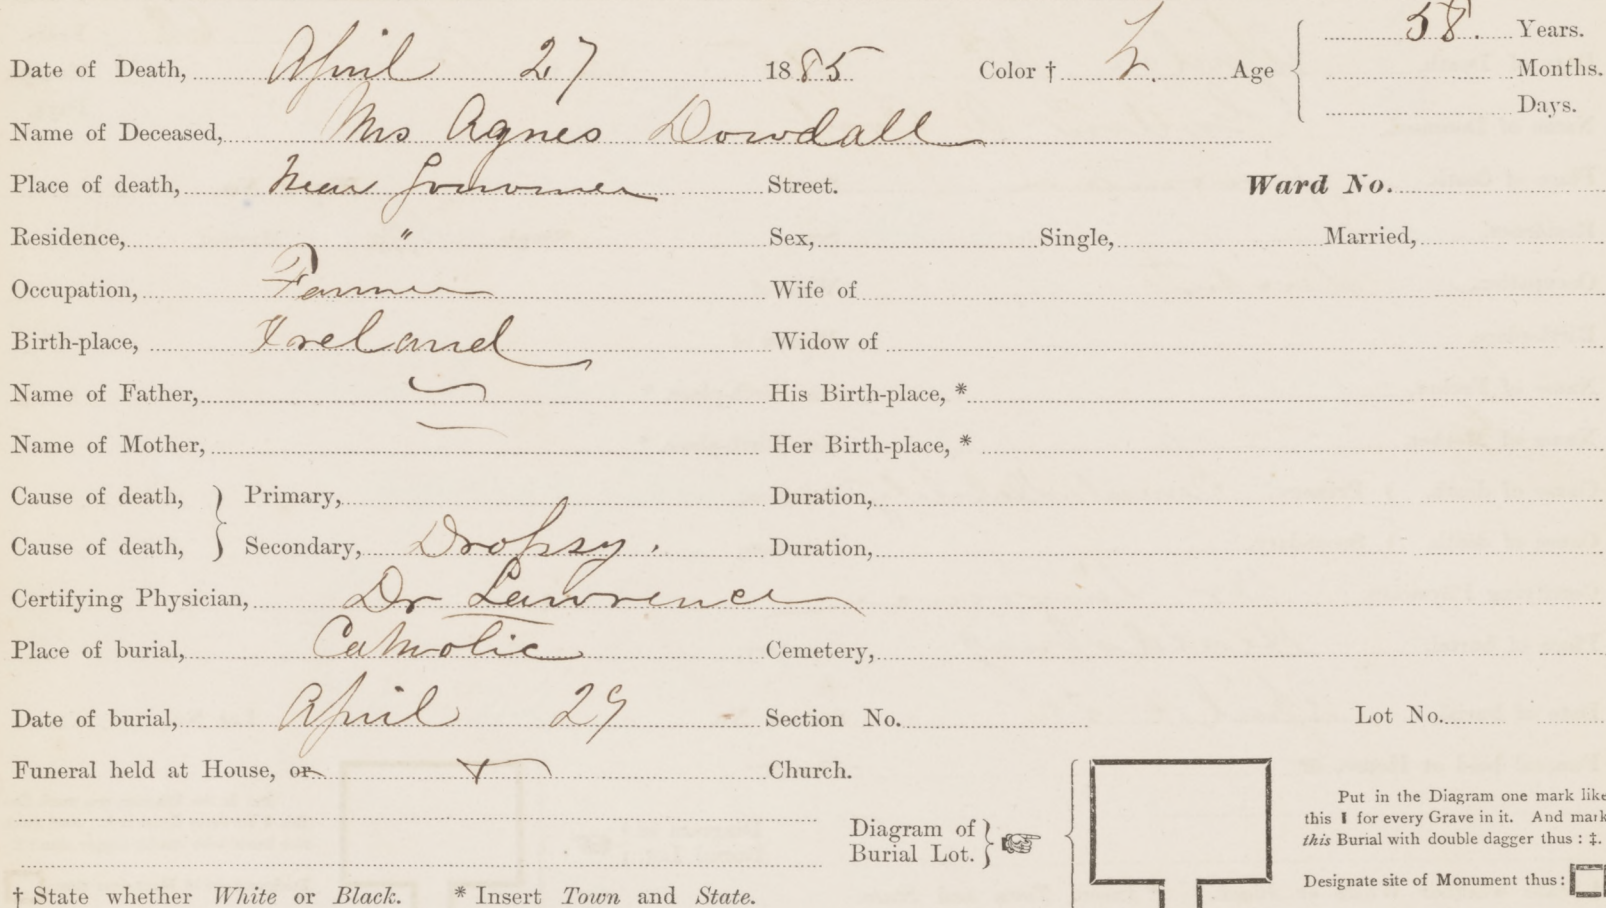 Date of Death, April 27 1885 Color † Age { 58. Years.
Months.
Days.
Name of Deceased, Mrs Agnes Dowdall
Place of death, Near Street. Ward No.
Residence, " Sex, Single, Married,
Occupation, Farmer Wife of
Birth-place, Ireland Widow of
Name of Father, His Birth-place, *
Name of Mother, Her Birth-place, *
Cause of death, } Primary, Duration,
Cause of death, } Secondary, Dropsy. Duration,
Certifying Physician, Dr Lawrence
Place of burial, Catholic Cemetery,
Date of burial, April 29 Section No. Lot No.
Funeral held at House, or Church.
Diagram of
Burial Lot. }
Put in the Diagram one mark like
this ❙ for every Grave in it. And mark
this Burial with double dagger thus : ‡.
Designate site of Monument thus :
† State whether White or Black. * Insert Town and State.